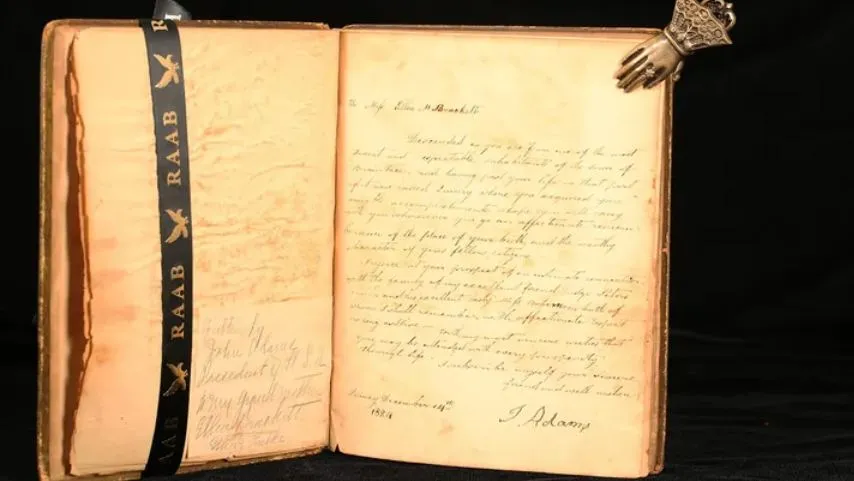 RAAB
RAAB
RAAB
by
John Adams
President of U S A
to my Grandmother
Ellen Brackett
To Miss Ellen M Brackett
Descended as you are from one of the most
ancient and respectable inhabitants of the town of
Braintree, and having past your life in that part
of it now called Quincy where you acquired your
accomplishments I hope you will carry
with you wheresoever you go an affectionate remem-
brance of the place of your birth, and the worthy
character of your fellow citizens
I rejoice at your prospect of an intimate connection
with the family of my excellent friend Judge Peters
and his excellent both of
whom I shall remember with affectionate respect
as long as I live — with my most sincere wishes that
you may be attended with every prosperity
through life — I subscribe myself your sincere
friend and well wisher
Quincy December 14th
1824
J. Adams